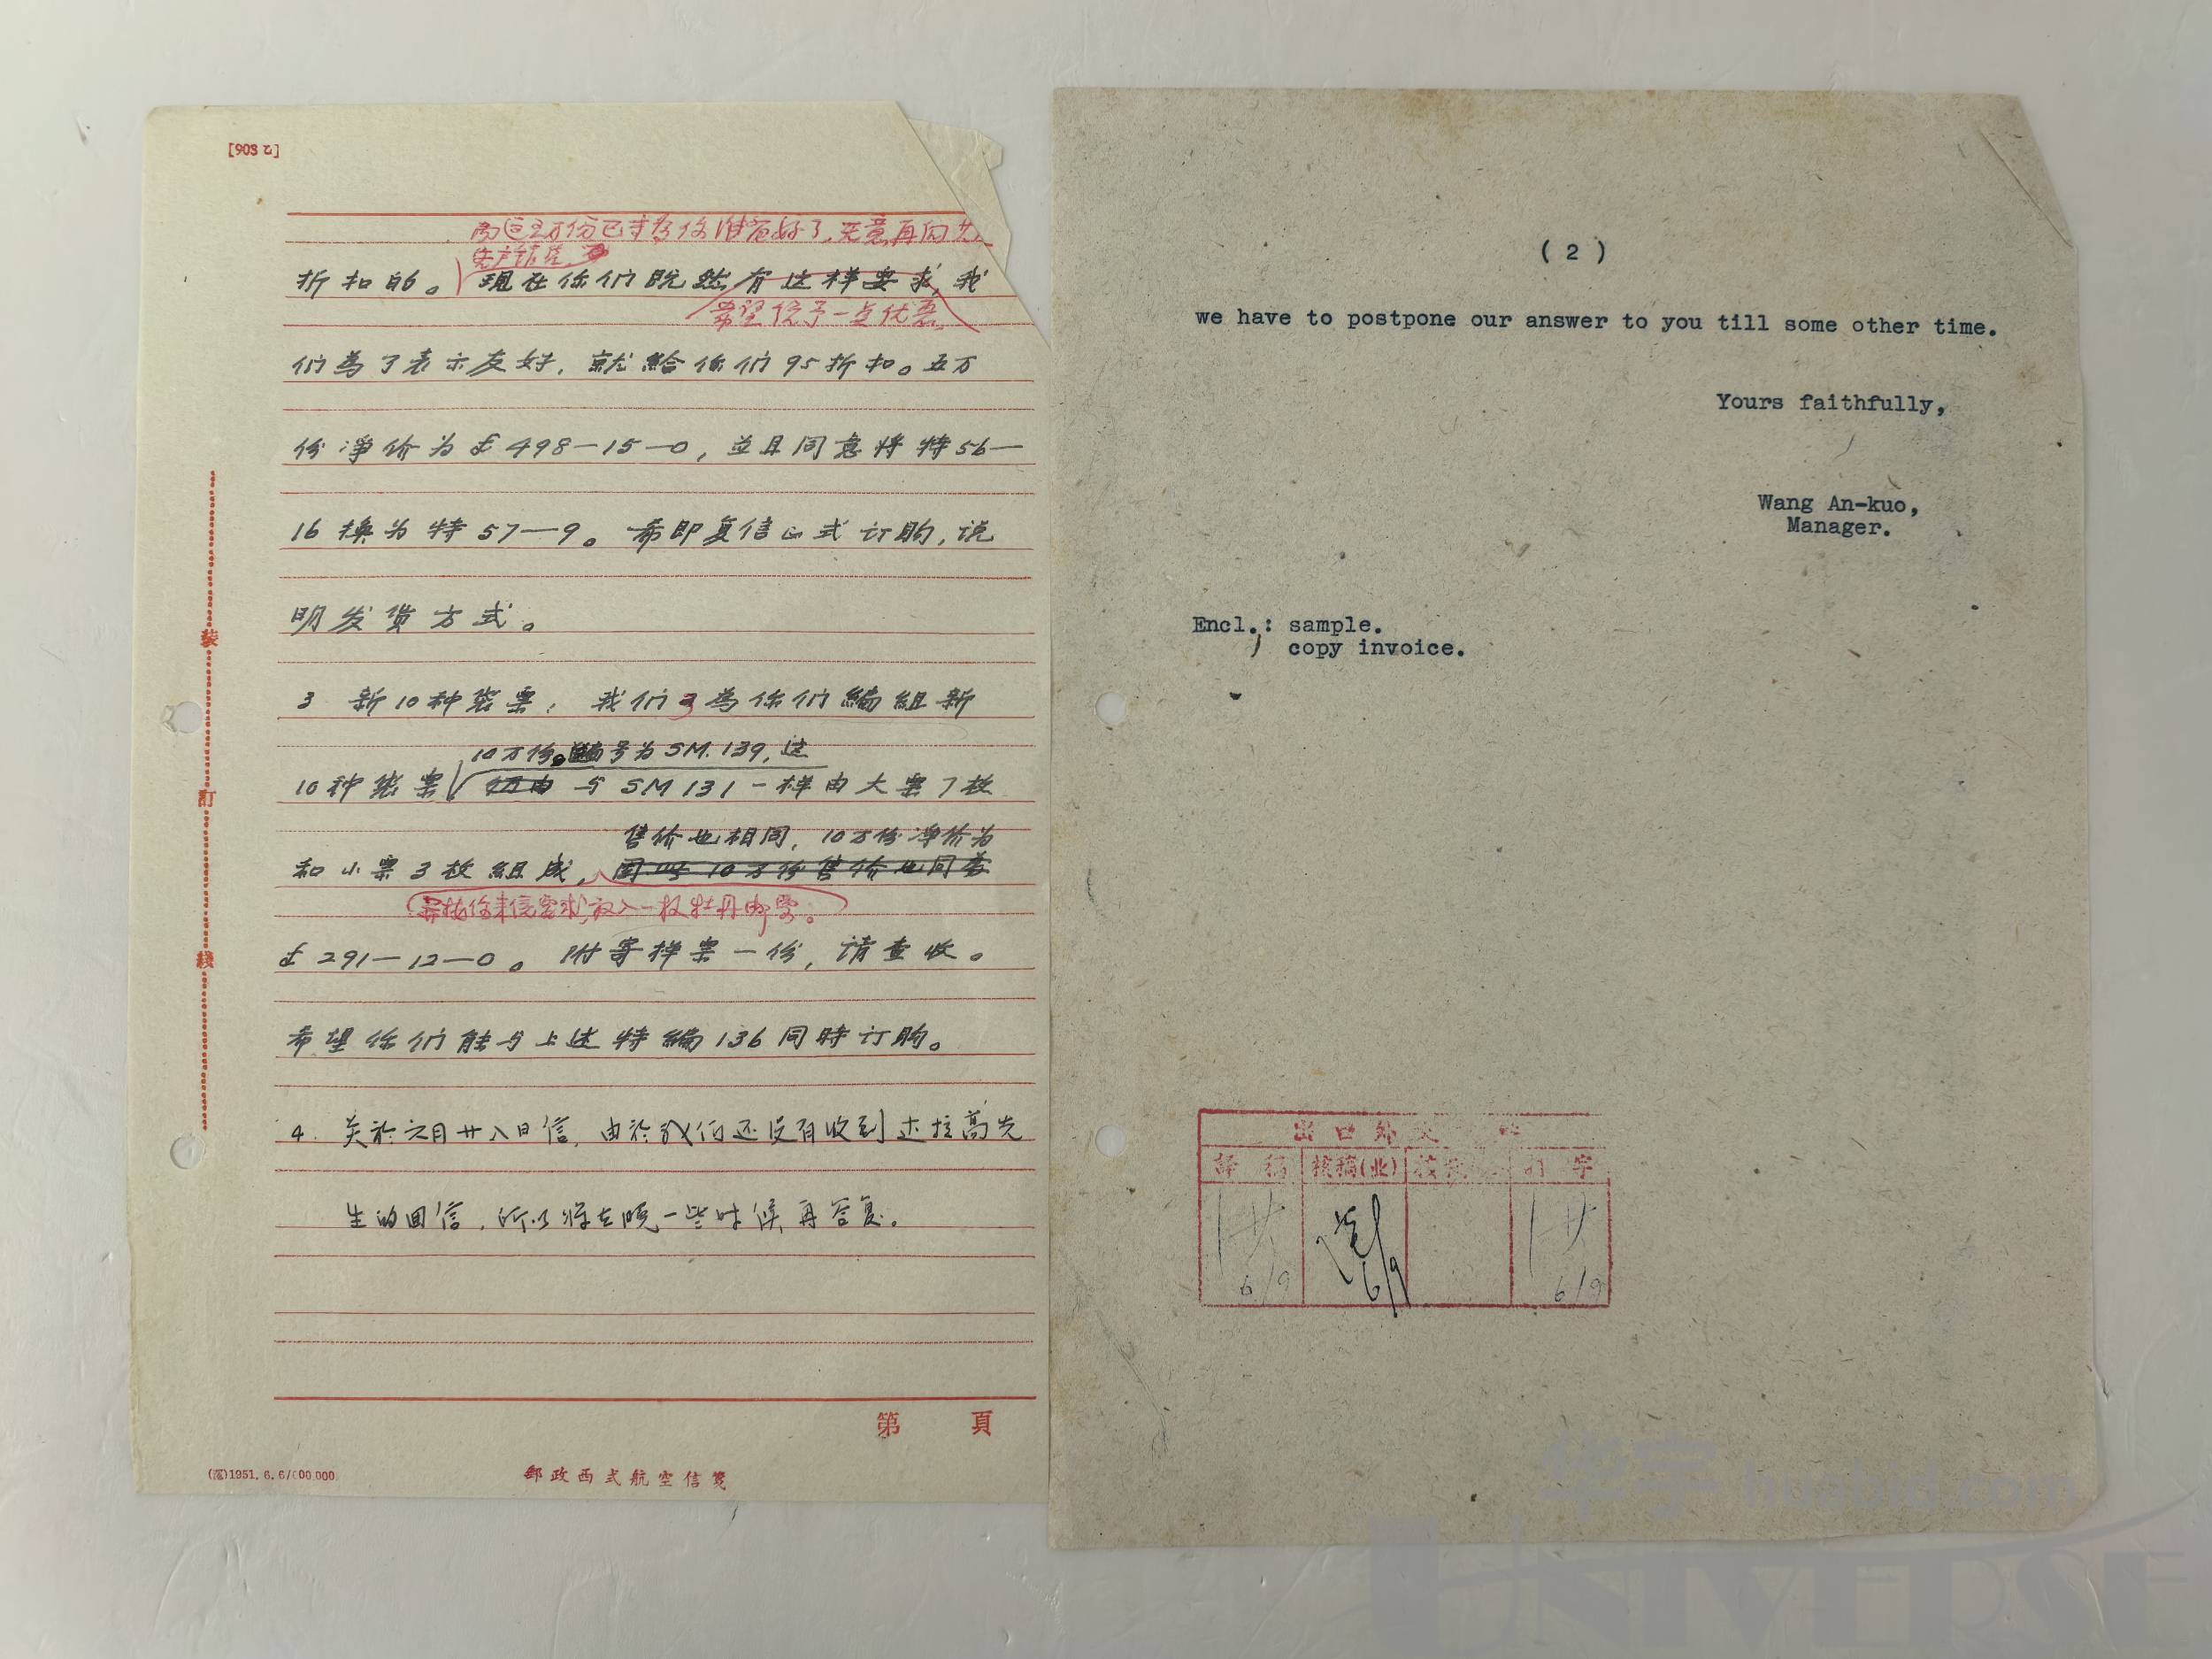 [903 乙]
折扣的。现在你们既然有这样要求,我
希望给予一点优惠
们為了表示友好,就給你们95折扣。五万
份净价为£498—15—0,並且同意将特56—
16换为特57—9。希即复信正式订购,说
明发货方式。
3 新10种袋票,我们为你们編組新
10万份。編号为SM.139,这
10种袋票 与SM131一样由大票7枚
售价也相同,10万份净价为
和小票3枚組成,
並按你来信要求,放入一枚牡丹邮票。
£291—12—0。附寄样票一份,请查收。
希望你们能与上述特編136同時订购。
4. 关於六月廿八日信,由於我们还没有收到 高先
生的回信,所以将在晚一些时候再答复。
裝
訂
綫
第 頁
郵政西式航空信箋
( 2 )
we have to postpone our answer to you till some other time.
Yours faithfully,
Wang An-kuo,
Manager.
Encl.: sample.
copy invoice.
出口外文
譯稿 核稿(业) 打字
6/9 6/9 6/9
华宇 huabid.com
UNIVERSE